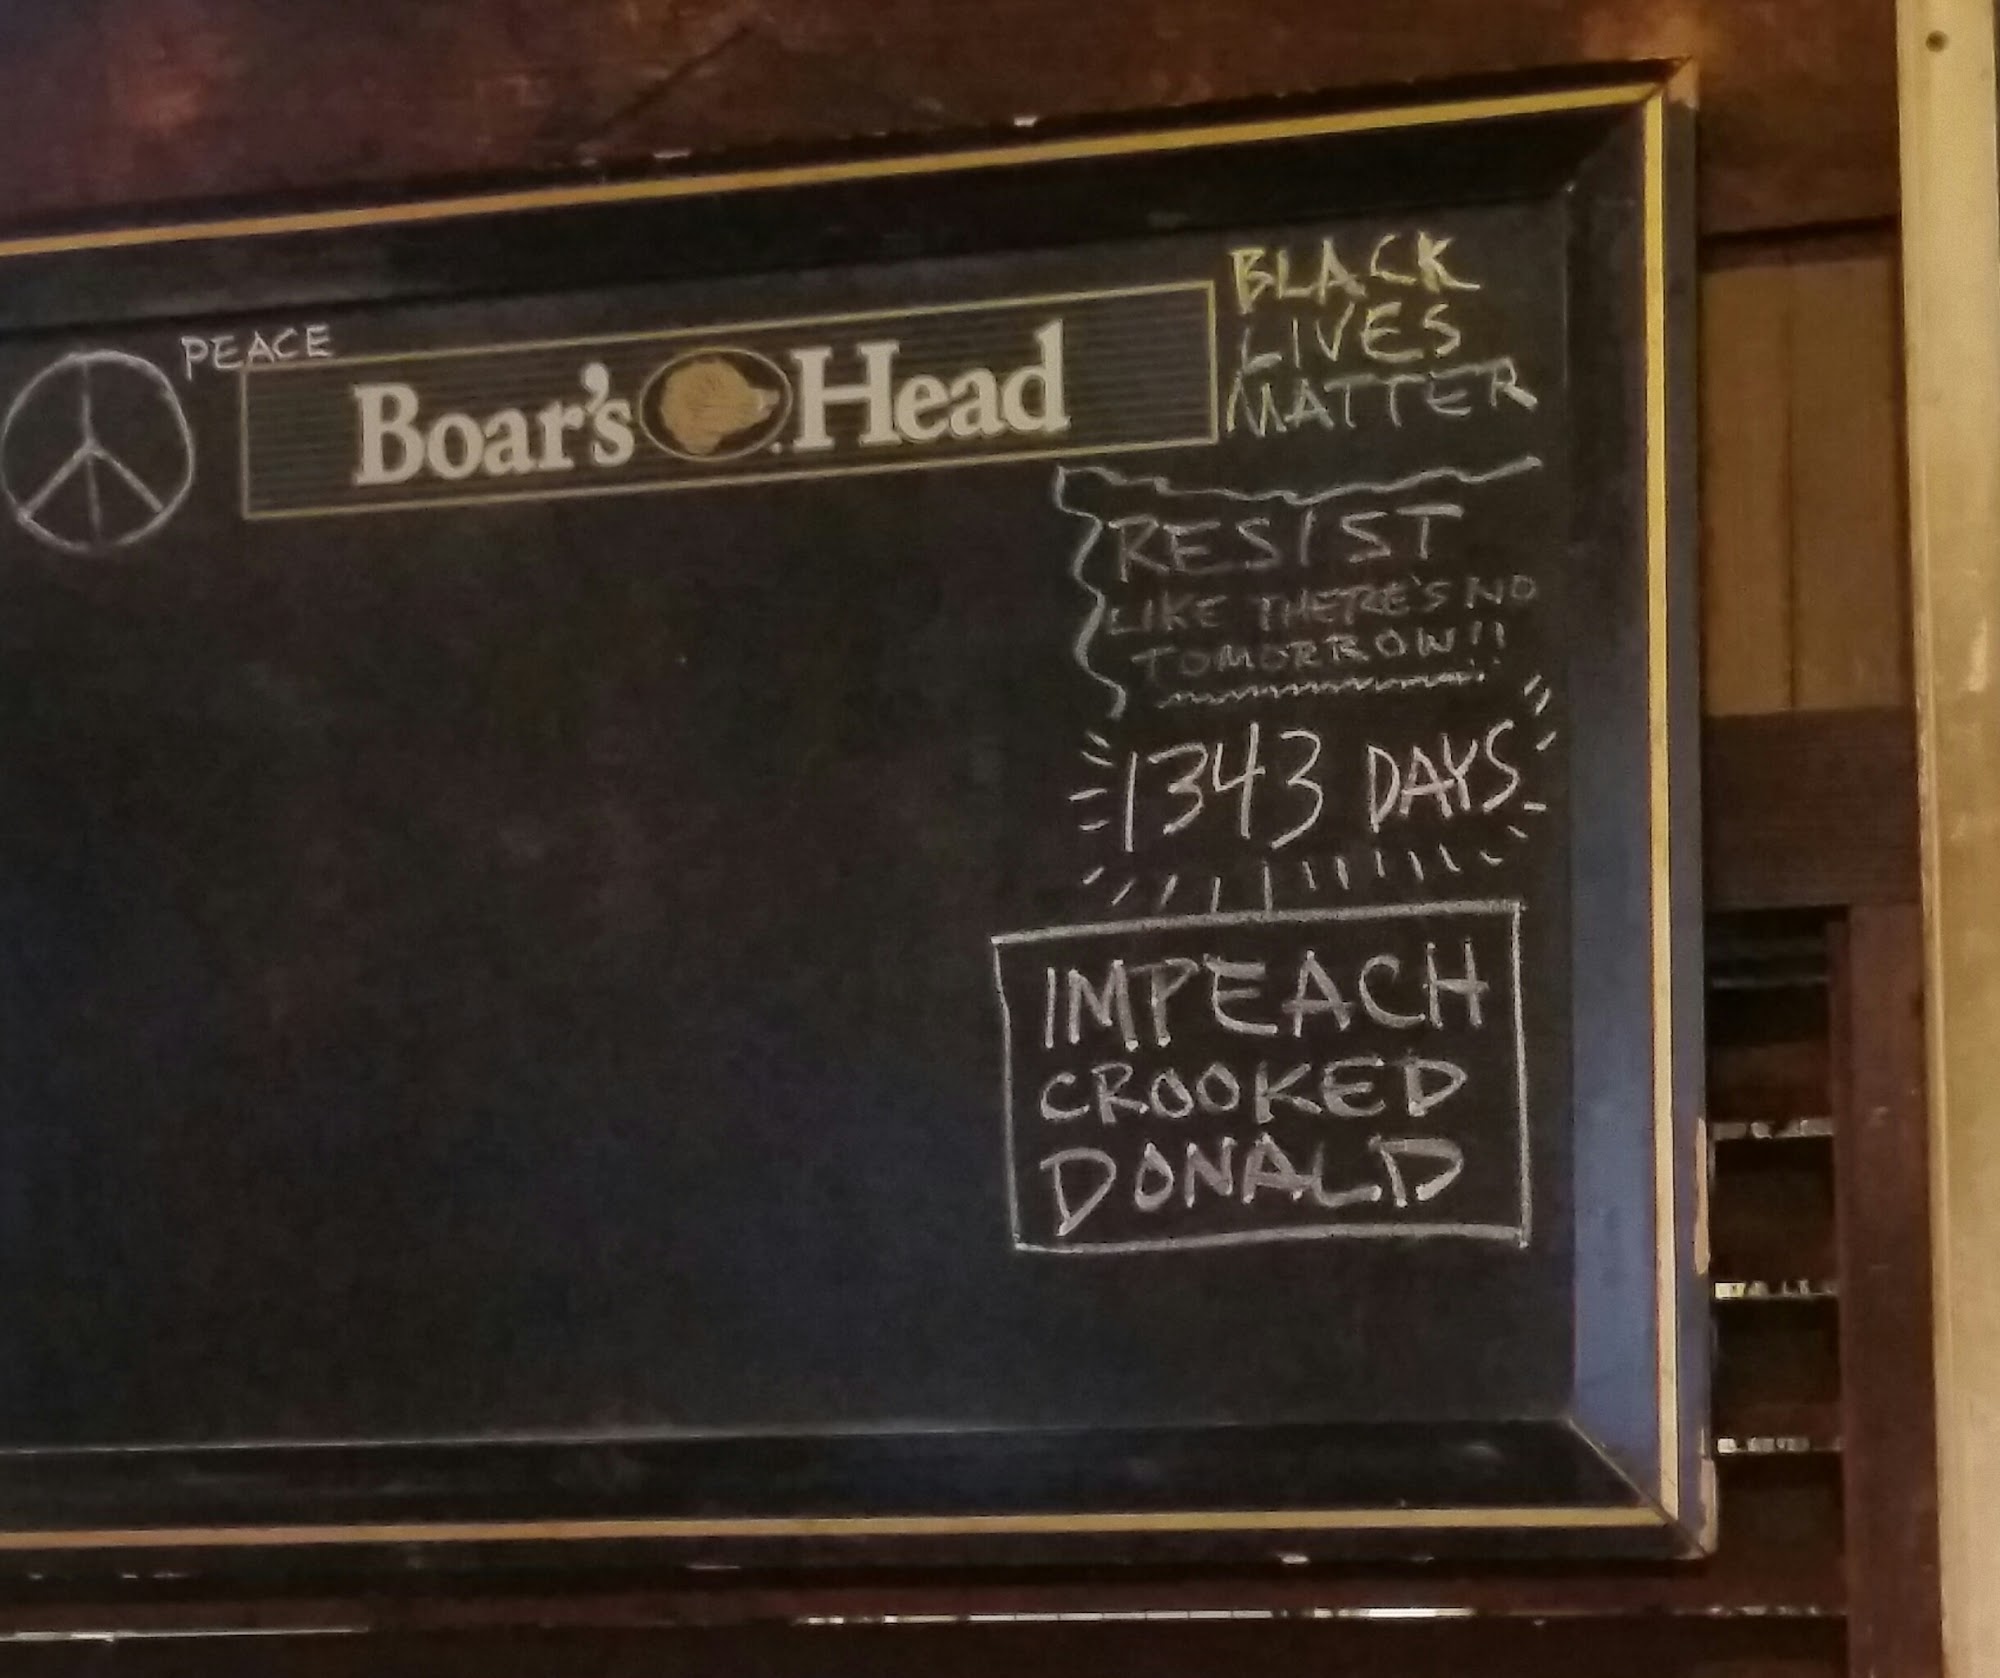 PEACE
Boar's Head
BLACK
LIVES
MATTER
RESIST
LIKE THERE'S NO
TOMORROW!!
1343 DAYS
IMPEACH
CROOKED
DONALD